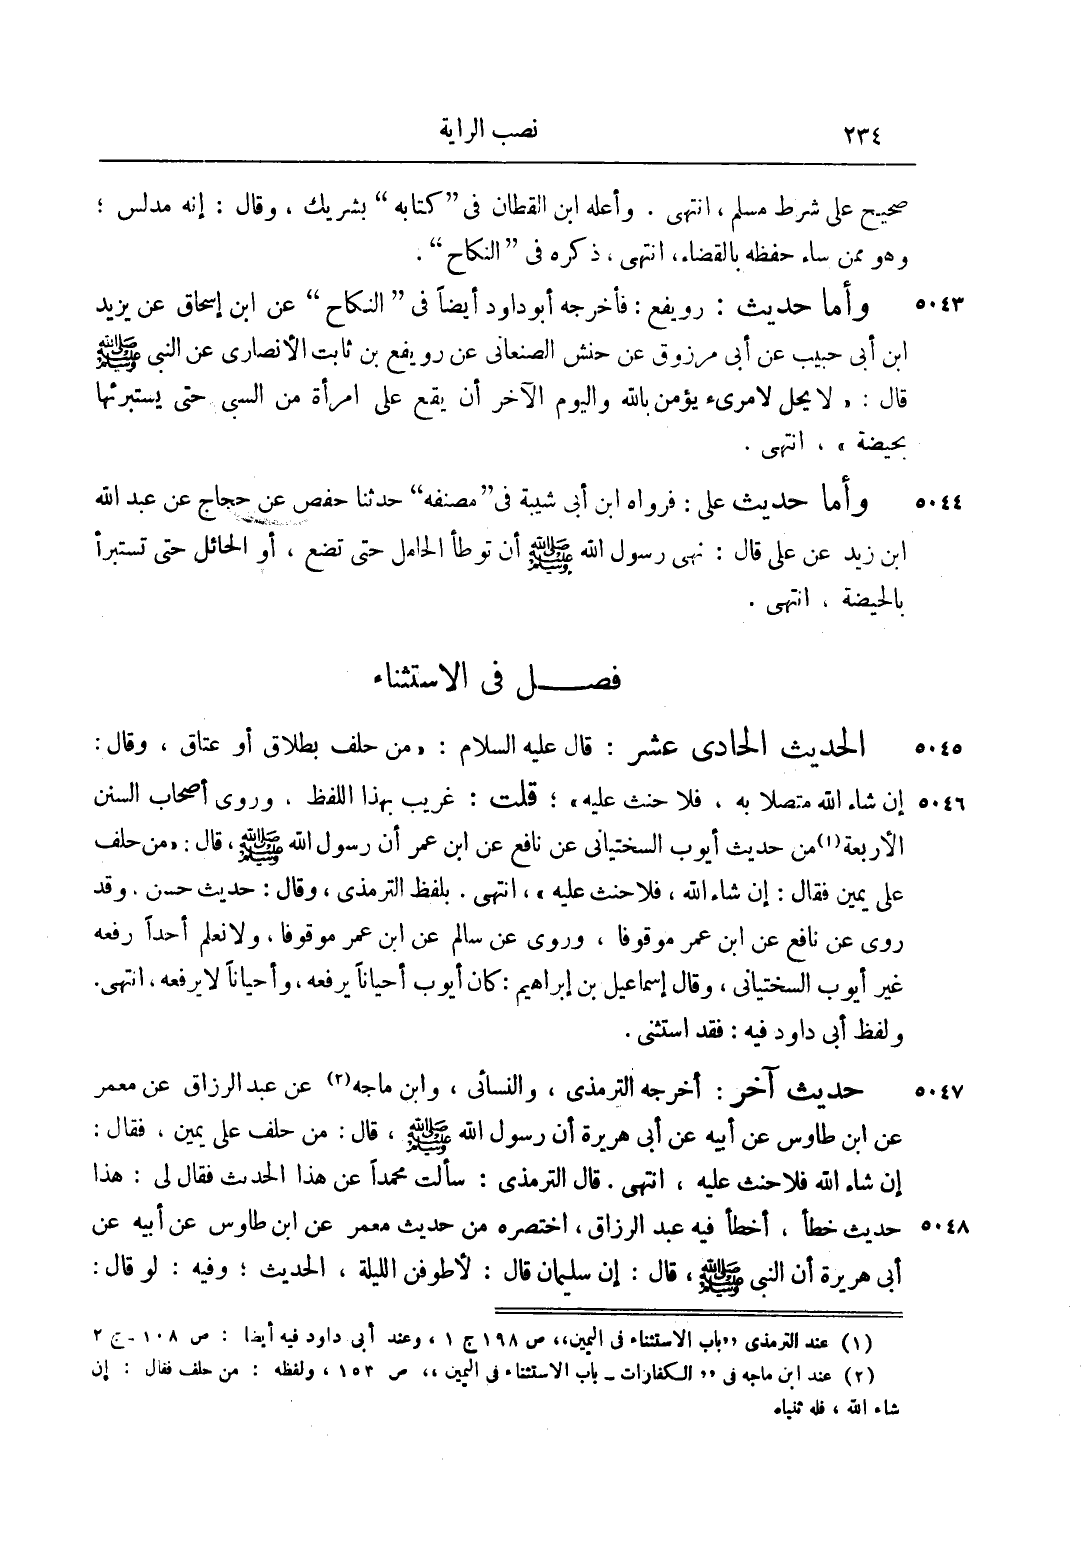 ٢٣٤ نصب الراية
صحيح على شرط مسلم ، انتهى . وأعله ابن القطان فى "كتابه" بشريك ، وقال : إنه مدلس ؛
وهو ممن ساء حفظه بالقضاء، انتهى ، ذكره فى "النكاح" .
٥٠٤٣ وأما حديث : رويفع : فأخرجه أبو داود أيضاً فى "النكاح" عن ابن إسحاق عن يزيد
ابن أبى حبيب عن أبى مرزوق عن حنش الصنعانى عن رويفع بن ثابت الأنصارى عن النبى ﷺ
قال : « لا يحل لامرىء يؤمن بالله واليوم الآخر أن يقع على امرأة من السبى حتى يستبرئها
بحيضة » ، انتهى .
٥٠٤٤ وأما حديث على : فرواه ابن أبى شيبة فى "مصنفه" حدثنا حفص عن حجاج عن عبد الله
ابن زيد عن على قال : نهى رسول الله ﷺ أن توطأ الحامل حتى تضع ، أو الحائل حتى تستبرأ
بالحيضة ، انتهى .
فصـــل فى الاستثناء
٥٠٤٥ الحديث الحادى عشر : قال عليه السلام : «من حلف بطلاق أو عتاق ، وقال :
٥٠٤٦ إن شاء الله متصلا به ، فلا حنث عليه» ؛ قلت : غريب بهذا اللفظ ، وروى أصحاب السنن
الأربعة(١) من حديث أيوب السختيانى عن نافع عن ابن عمر أن رسول الله ﷺ ، قال : «من حلف
على يمين فقال : إن شاء الله ، فلا حنث عليه » ، انتهى . بلفظ الترمذى ، وقال : حديث حسن . وقد
روى عن نافع عن ابن عمر موقوفا ، وروى عن سالم عن ابن عمر موقوفا ، ولا نعلم أحداً رفعه
غير أيوب السختيانى ، وقال إسماعيل بن إبراهيم : كان أيوب أحياناً يرفعه ، وأحياناً لا يرفعه ، انتهى.
ولفظ أبى داود فيه : فقد استثنى .
٥٠٤٧ حديث آخر : أخرجه الترمذى ، والنسائى ، وابن ماجه(٢) عن عبد الرزاق عن معمر
عن ابن طاوس عن أبيه عن أبى هريرة أن رسول الله ﷺ ، قال : من حلف على يمين ، فقال :
إن شاء الله فلا حنث عليه ، انتهى . قال الترمذى : سألت محمداً عن هذا الحديث فقال لى : هذا
٥٠٤٨ حديث خطأ ، أخطأ فيه عبد الرزاق ، اختصره من حديث معمر عن ابن طاوس عن أبيه عن
أبى هريرة أن النبى ﷺ ، قال : إن سليمان قال : لأطوفن الليلة ، الحديث ؛ وفيه : لو قال :
(١) عند الترمذى ,,باب الاستثناء فى اليمين،، ص ١٩٨ ج ١ ، وعند أبى داود فيه أيضا : ص ١٠٨ - ج ٢
(٢) عند ابن ماجه فى ,, الكفارات ــ باب الاستثناء فى اليمين ،، ص ١٥٣ ، ولفظه : من حلف فقال : إن
شاء الله ، فله ثنياه